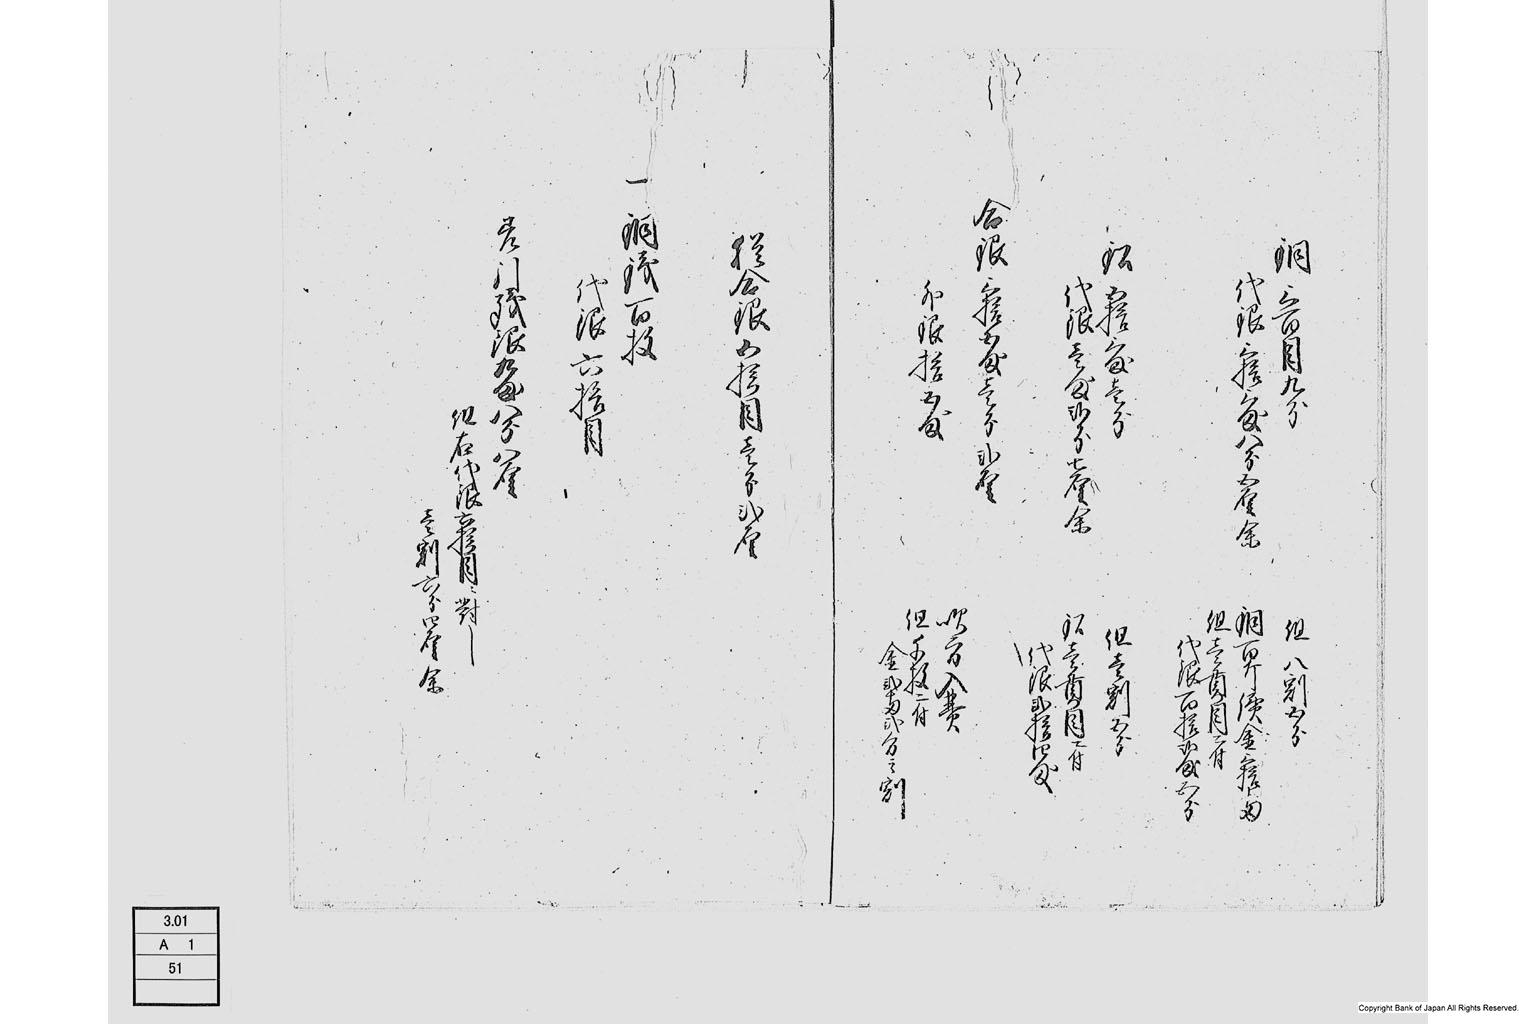 銅三百目九分
但八割五分
代銀三拾三匁八分五厘余
銅百斤渡金三拾両
但壱貫目ニ付
代銀百拾弐匁五分
鉛五拾三匁壱分
但壱割五分
代銀壱匁弐分七厘余
鉛壱貫目ニ付
代銀弐拾四匁
合銀三拾五匁壱分弐厘
吹方入費
外銀拾五匁
但千枚ニ付
金弐両弐分之割
惣合銀五拾目壱分弐厘
一銅銭百枚
代銀六拾目
差引残銀九匁八分八厘
但右代銀六拾目ニ対し
壱割六分四厘余
3.01
A 1
51
Copyright Bank of Japan All Rights Reserved.